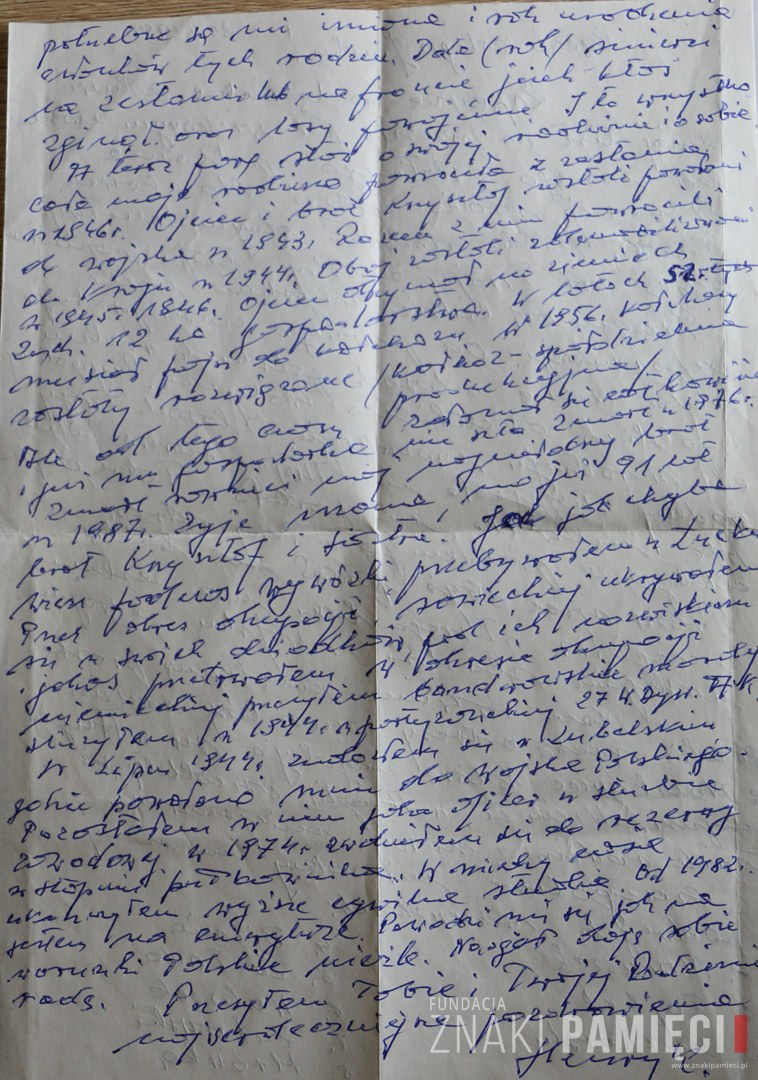 potrzebne są mi imiona i rok urodzenia
członków tych rodzin. Data (rok) śmierci
na zesłaniu lub na froncie jeśli ktoś
zginął oraz losy powojenne. I to wszystko
A teraz parę słów o mojej rodzinie i o sobie.
cała moja rodzina powróciła z zesłania
w 1946r. Ojciec i brat Krzysztof zostali powołani
do wojska w 1943r Razem z nim powrócili
do Kraju w 1944r. Obaj zostali zdemobilizowani
w 1945r. 1946. Ojciec otrzymał na ziemiach
Zach. 12 ha gospodarstwa. W latach 52
musiał pójść do kołchozu. W 1956. kołchozy
zostały rozwiązane /kołchoz - spółdzielnia
produkcyjna/
Ale od tego czasu załamał się całkowicie
i już mu gospodarka nie szła zmarł w 1976r.
zmarł również mój najmłodszy brat
w 1987r. Żyje mama, ma już 91 lat
brat Krzysztof i siostra. Ja jak chyba
wiesz podczas wywózki przebywałem w Łucku
Przez okres okupacji sowieckiej ukrywałem
się u swoich dziadków, pod ich nazwiskiem
i jakoś przetrwałem. W okresie okupacji
niemieckiej przeżyłem banderowskie mordy
służyłem w 1944r. w partyzanckiej 27 W. Dyw. AK.
W Lipcu 1944r. znalazłem się w Lubelskim
gdzie powołano mnie do Wojska Polskiego.
Pozostałem w nim jako oficer w służbie
zawodowej w 1974r. zwolniłem się do rezerwy
w stopniu pułkownika. W między czasie
ukończyłem wyższe cywilne studia. Od 1982r.
jestem na emeryturze. Powodzi mi się jak na
warunki Polskie nieźle. Naogół daję sobie
radę. Przesyłam Tobie i Twojej Rodzinie
najserdeczniejsze pozdrowienia
Henryk.
FUNDACJA
ZNAKI PAMIĘCI
www.znakipamieci.pl